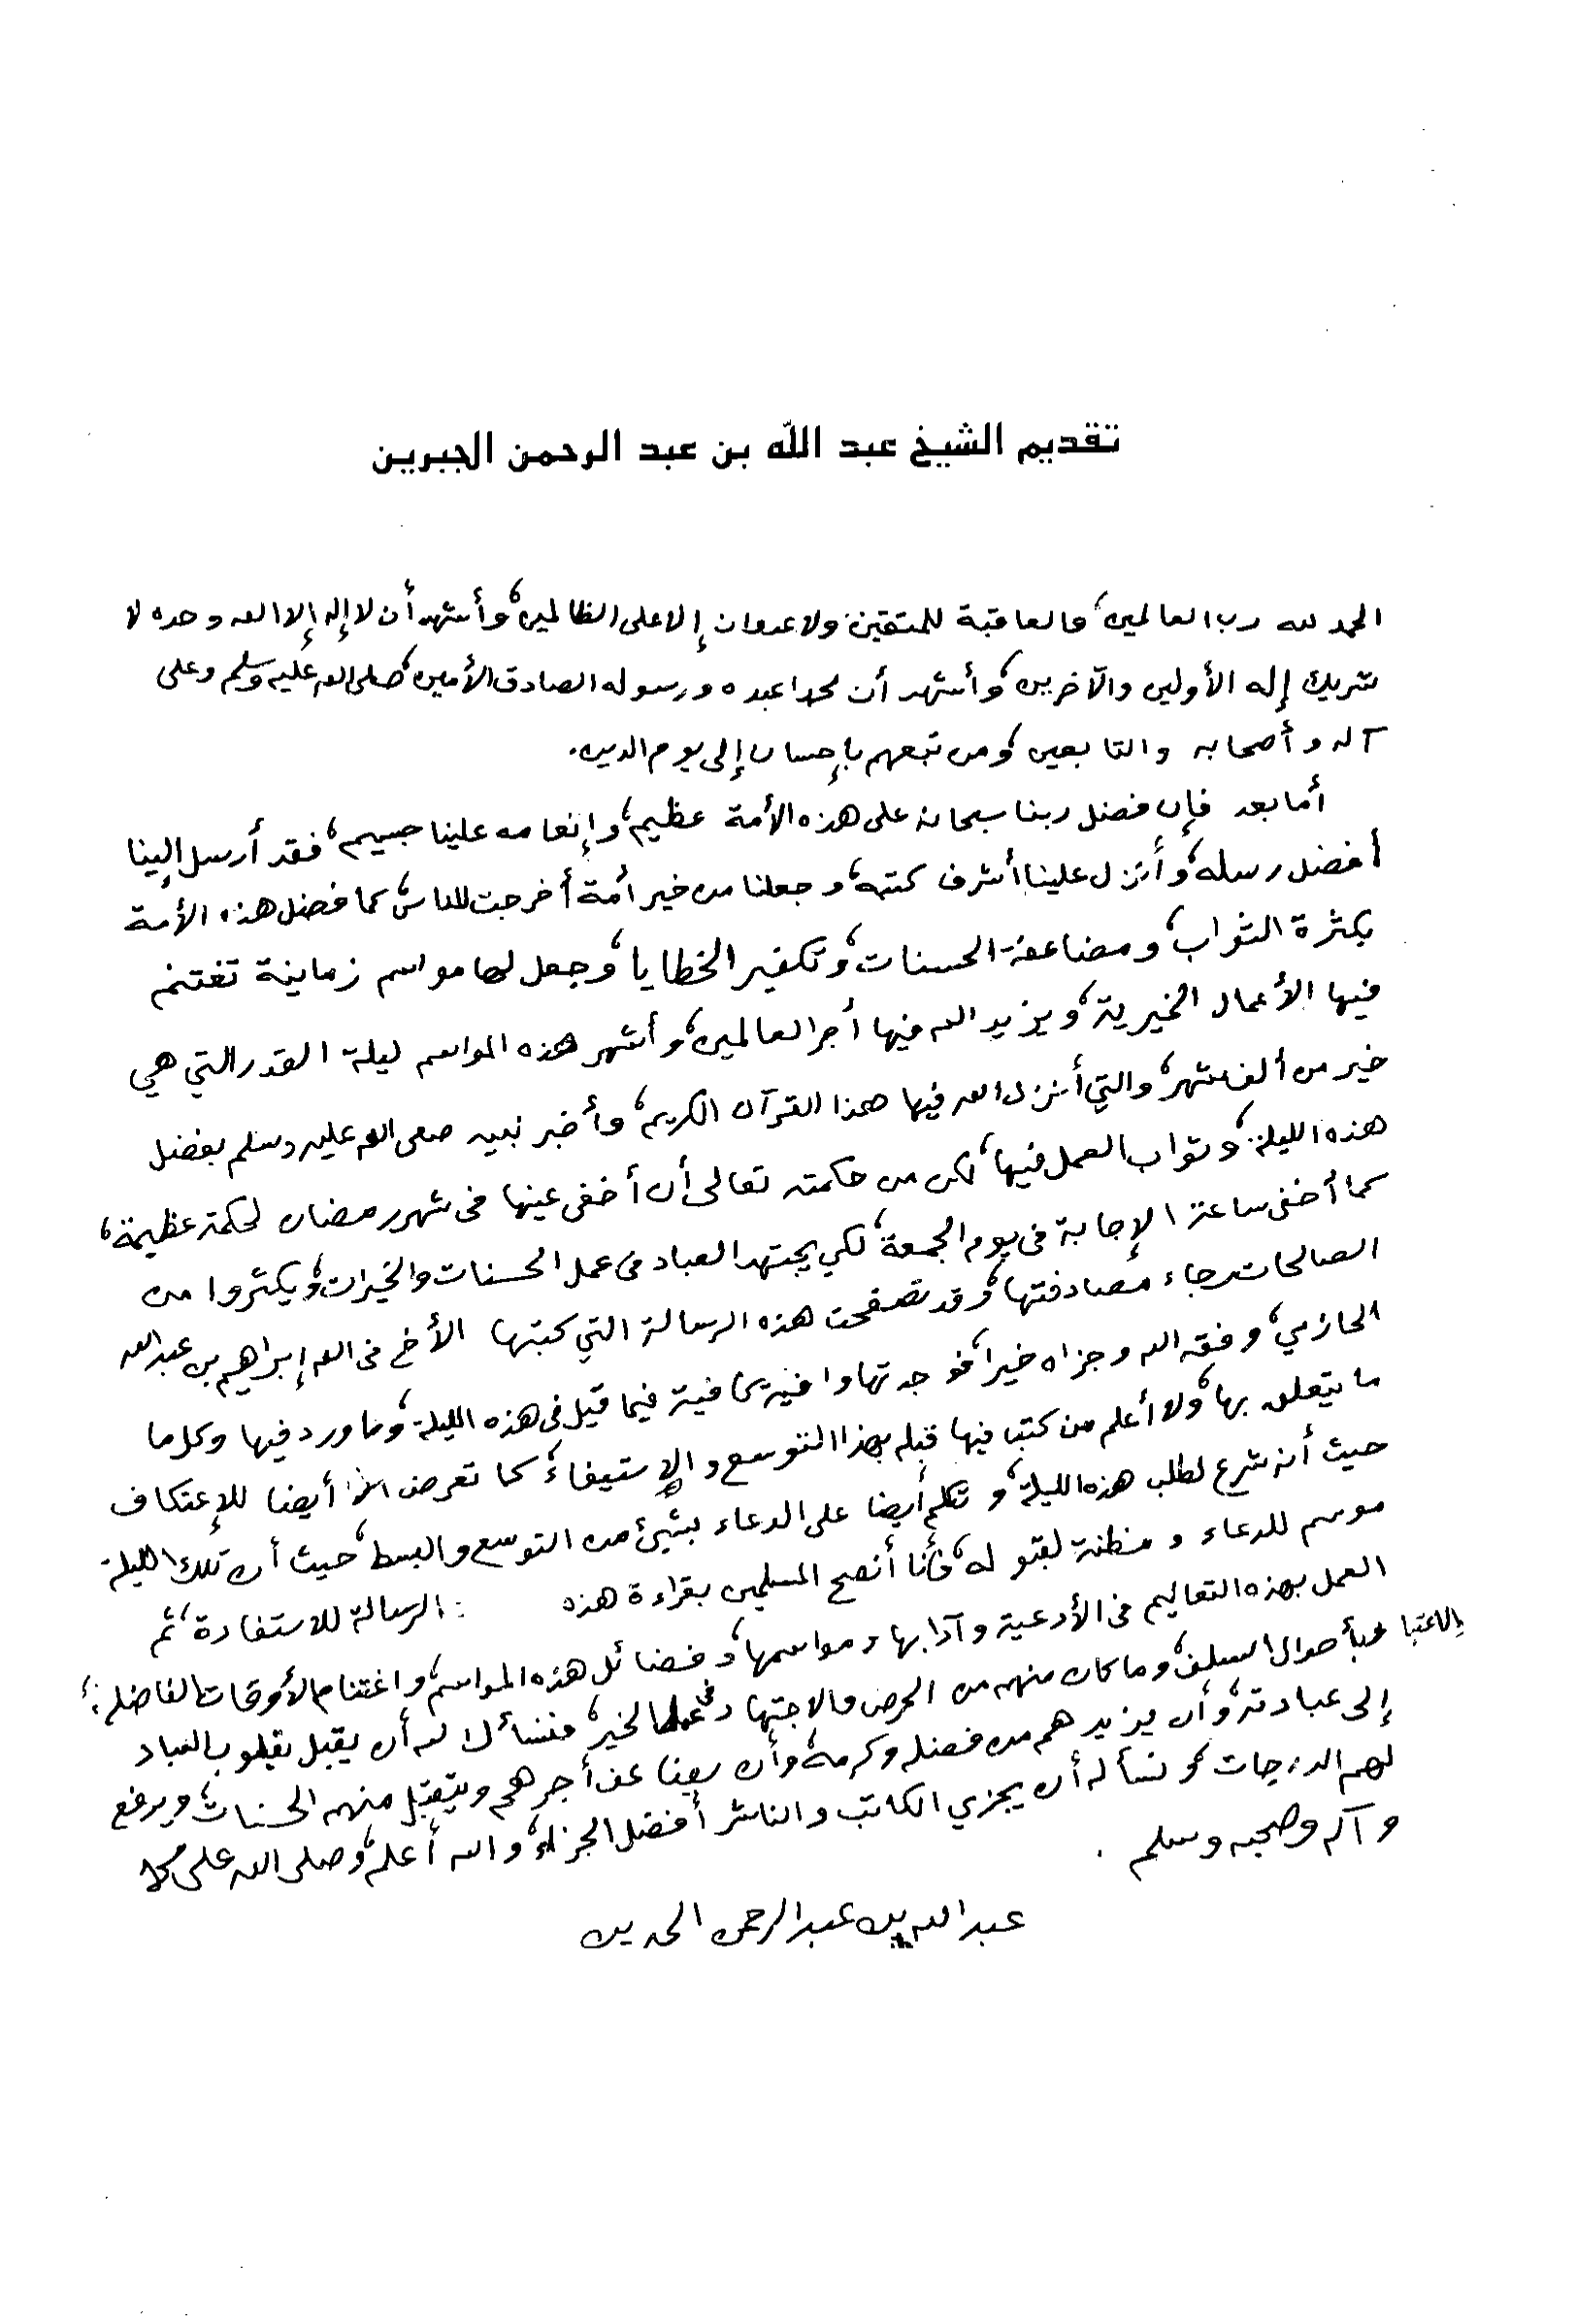 تقديم الشيخ عبد الله بن عبد الرحمن الجبرين
الحمد لله رب العالمين، والعاقبة للمتقين ولا عدوان إلا على الظالمين، وأشهد أن لا إله إلا الله وحده لا
شريك إله الأولين والآخرين، وأشهد أن محمدا عبده ورسوله الصادق الأمين، صلى الله عليه وسلم وعلى
آله وأصحابه والتابعين، ومن تبعهم بإحسان إلى يوم الدين.
أما بعد فإن فضل ربنا سبحانه على هذه الأمة عظيم، وإنعامه علينا جسيم، فقد أرسل إلينا
أفضل رسله، وأنزل علينا أشرف كتبه، وجعلنا من خير أمة أخرجت للناس، كما فضل هذه الأمة
بكثرة الثواب، ومضاعفة الحسنات، وتكفير الخطايا، وجعل لها مواسم زمانية تغتنم
فيها الأعمال الخيرية، ويزيد الله فيها أجر العاملين، وأشهر هذه المواسم ليلة القدر التي هي
خير من ألف شهر، والتي أنزل الله فيها هذا القرآن الكريم، وأخبر نبيه صلى الله عليه وسلم بفضل
هذه الليلة، وثواب العمل فيها، لكن من حكمته تعالى أن أخفى عينها في شهر رمضان لحكمة عظيمة،
كما أخفى ساعة الإجابة في يوم الجمعة، لكي يجتهد العباد في عمل الحسنات والخيرات، ويكثروا من
الصالحات رجاء مصادفتها، وقد تصفحت هذه الرسالة التي كتبها الأخ في الله إبراهيم بن عبد الله
الحازمي، وفقه الله وجزاه خيرا، فوجدتها وافية كافية فيما قيل في هذه الليلة، وما ورد فيها وكل ما
ما يتعلق بها، ولا أعلم من كتب فيها قبله بهذا التوسع والإستيفاء، كما تعرض الأخ أيضا للإعتكاف
حيث أنه شرع لطلب هذه الليلة، وتكلم أيضا على الدعاء بشيئ من التوسع والبسط، حيث أن تلك الليلة
موسم للدعاء ومظنة لقبوله، فأنا أنصح المسلمين بقراءة هذه الرسالة للاستفادة، ثم
العمل بهذه التعاليم في الأدعية وآدابها ومواسمها، وفضائل هذه المواسم، واغتنام الأوقات الفاضلة،
الاعتبار بأحوال السلف، وما كان منهم من الحرص والاجتهاد في الخير، فنسأل الله أن يقبل بقلوب العباد
إلى عبادته، وأن يزيدهم من فضله وكرمه، وأن يضاعف أجرهم ويتقبل منهم الحسنات، ويرفع
لهم الدرجات، ونسأله أن يجزي الكاتب والناشر أفضل الجزاء، والله أعلم، وصلى الله على محمد
وآله وصحبه وسلم.
عبد الله بن عبد الرحمن الجبرين